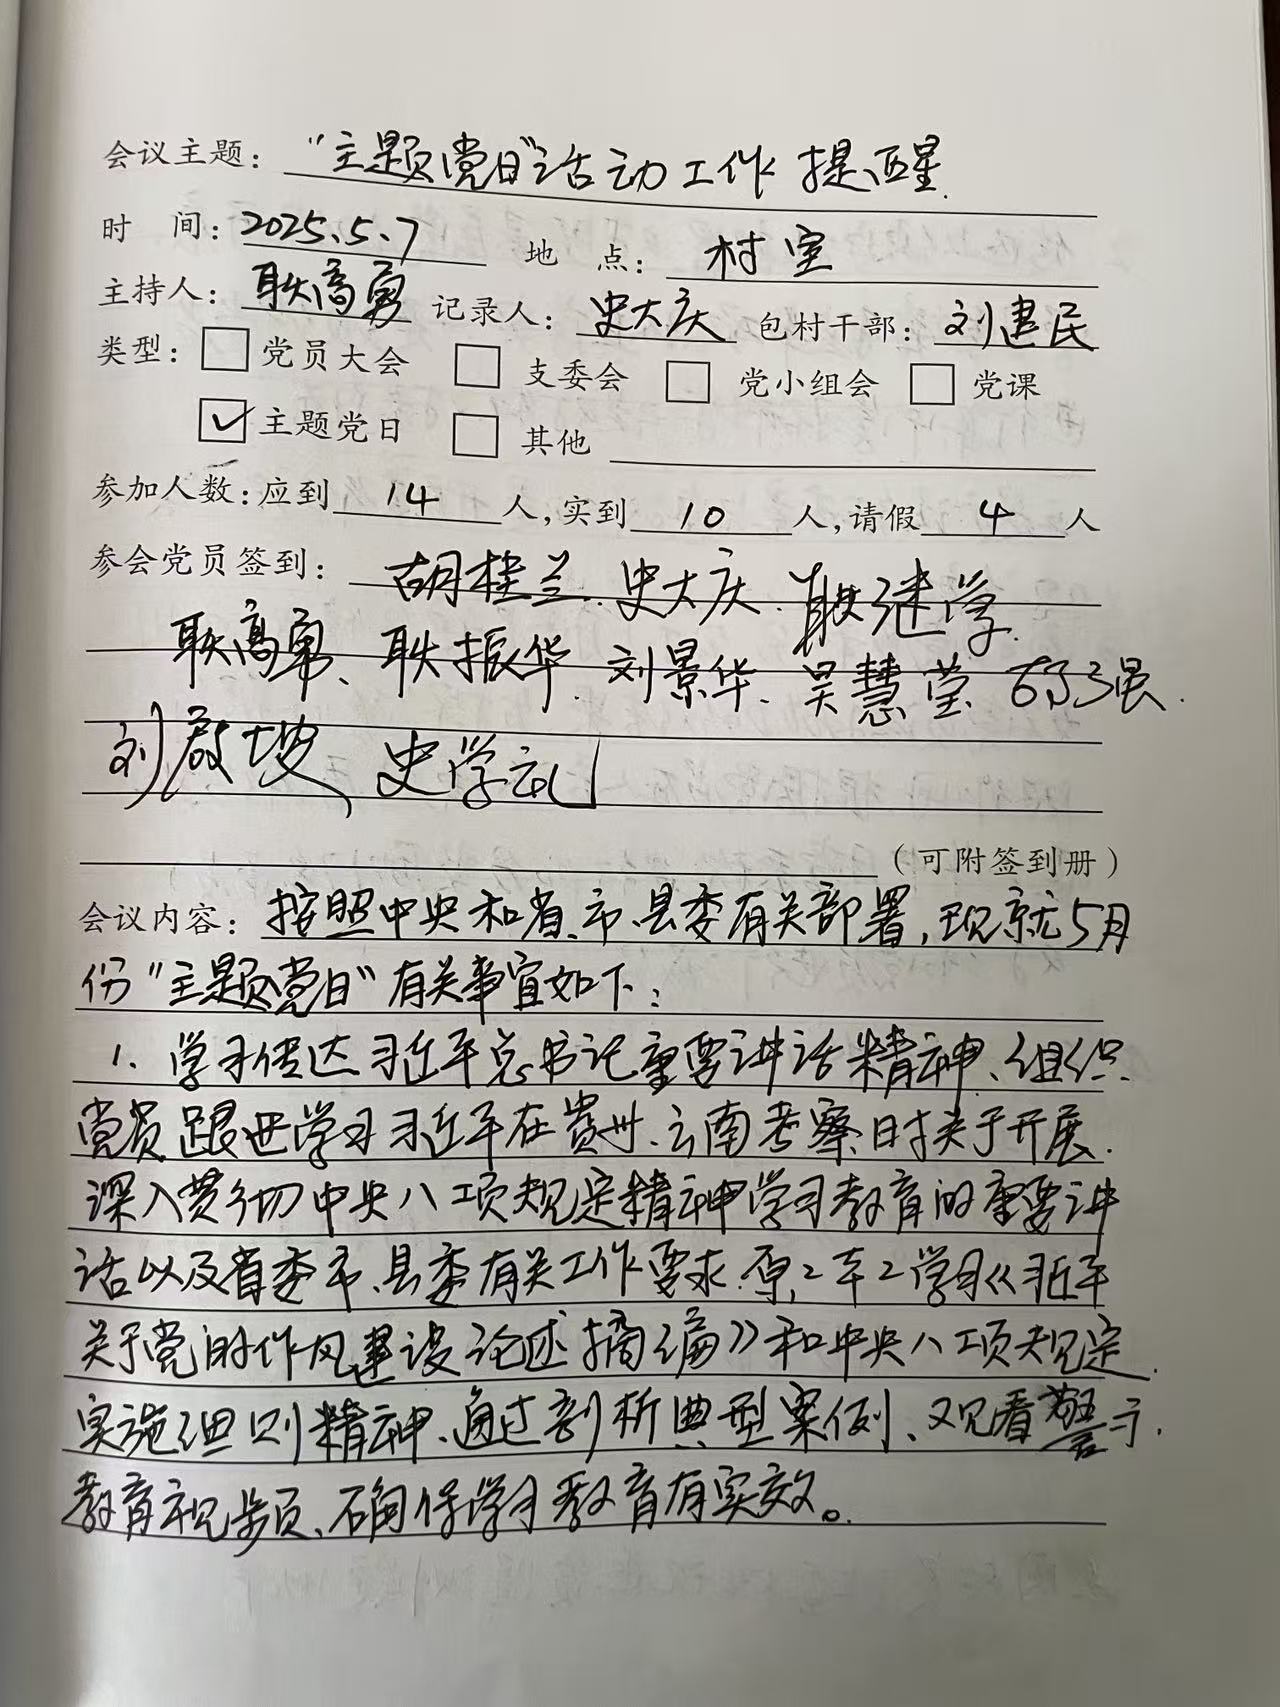 会议主题：“主题党日”活动工作提醒.
时 间：2025.5.7 地 点：村室
主持人：耿高勇 记录人：史大庆 包村干部：刘建民
类型：□党员大会 □支委会 □党小组会 □党课
☑主题党日 □其他
参加人数：应到 14 人，实到 10 人，请假 4 人
参会党员签到：胡桂兰、史大庆、耿继学
耿高勇、耿振华、刘景华、吴慧莹
史学礼
（可附签到册）
会议内容：按照中央和省、市、县委有关部署，现就5月
份“主题党日”有关事宜如下：
1. 学习传达习近平总书记重要讲话精神、组织
党员跟进学习习近平在贵州、云南考察时关于开展
深入贯彻中央八项规定精神学习教育的重要讲
话以及省委市、县委有关工作要求.原2本2学习《习近平
关于党的作风建设论述摘编》和中央八项规定
实施细则精神、通过剖析典型案例、观看警示
教育视频、确保学习教育有实效。